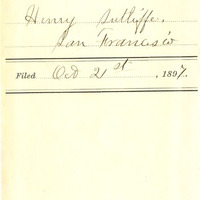 Henry Sutliffe.
San Francisco
Filed Oct 21st, 1897.